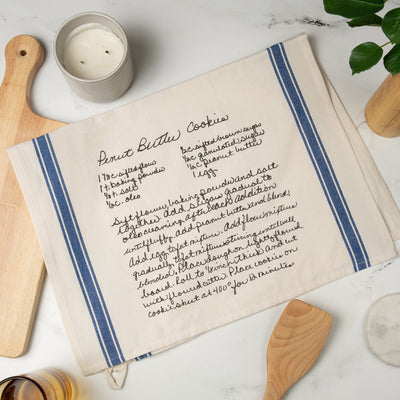 Peanut Butter Cookies
1 ¾c sifted flour
1 t. baking powder
¾ t. salt
½c. oleo
½c sifted brown sugar
½c granulated sugar
½c peanut butter
1 egg
Sift flour, baking powder and salt
together. Add sugar gradual to
oleo creaming after each addition
until fluffy, add peanut butter and blend;
Add egg to first mixture. Add flour mixture
gradually to first mixture stirring until well
blended. Place dough on lightly floured
board. Roll to ⅛ inch thick and cut
with floured cutter. Place cookies on
cookie sheet at 400° for 12 minutes